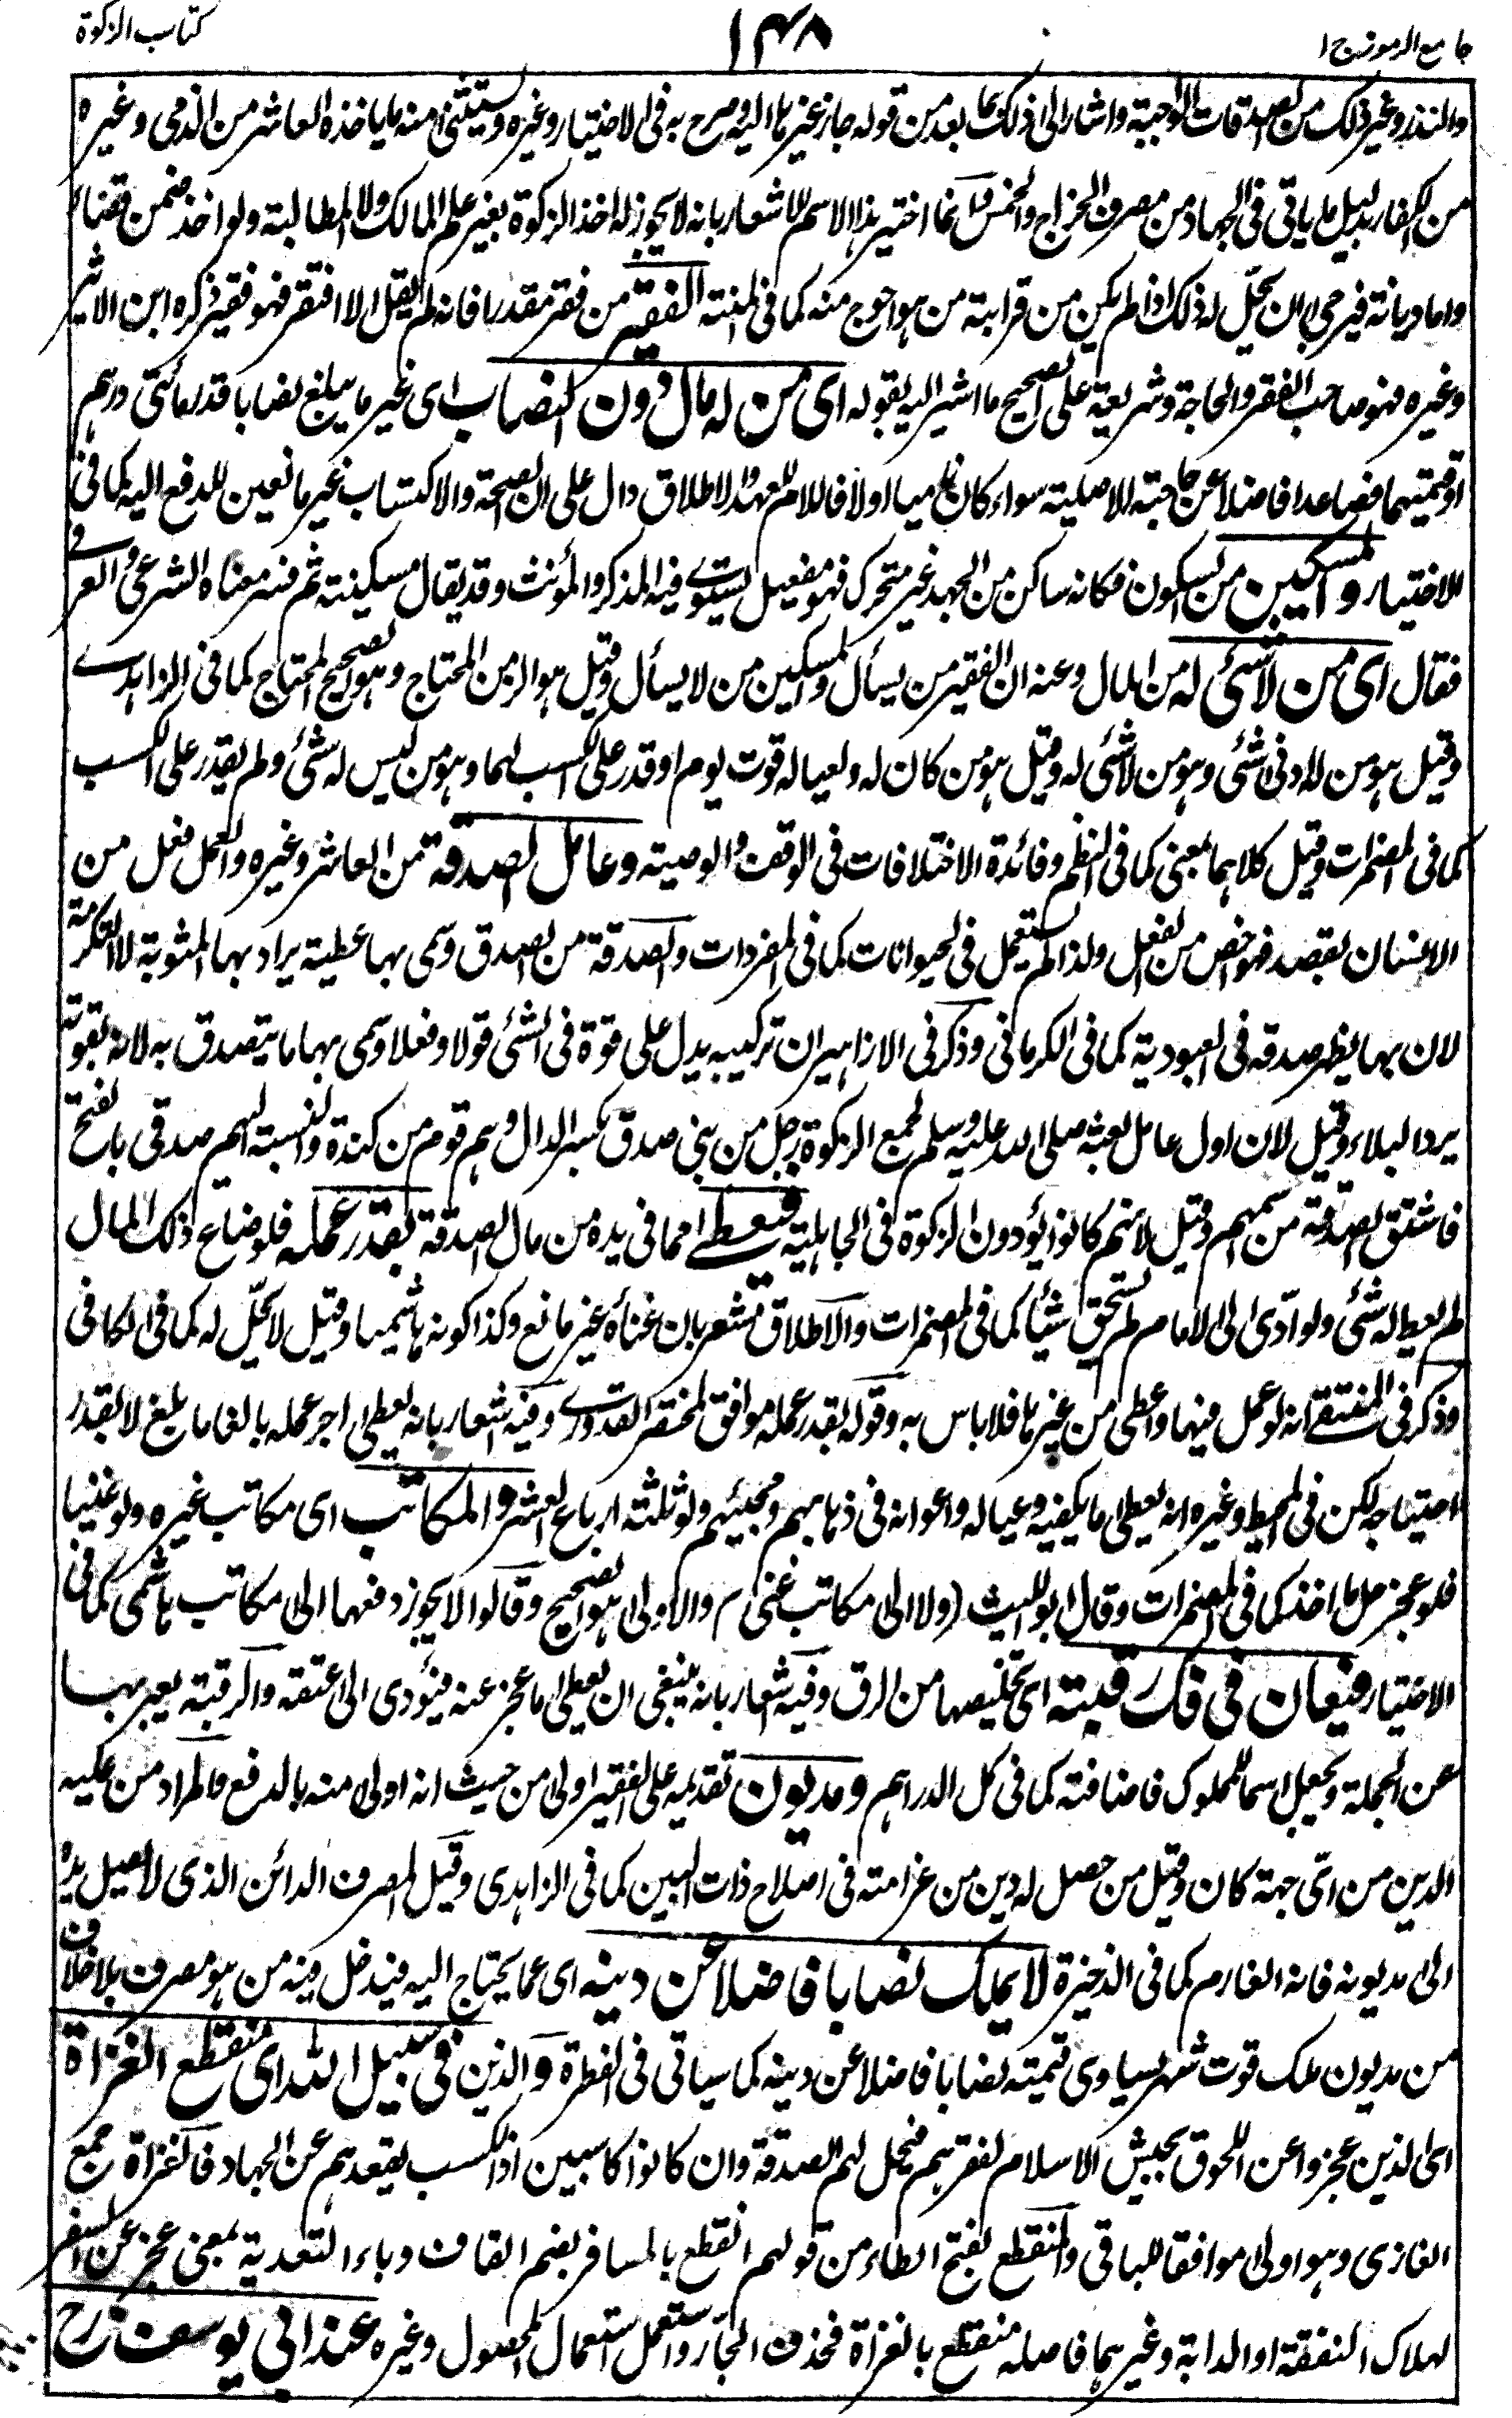 جامع الرموز ج ا
١٣٨
كتاب الزكوة
والنذر وغير ذلك من الصدقات الواجبة واشار الى ذلك بما بعد من قوله جاز غيرها اليه وصرح به فى الاختيار وغيره ويستثنى منه ما ياخذه العاشر من الذمى وغيره
من الكفار بدليل ما ياتى فى الجهاد من مصرف الخراج والخمس قيل انما اختير هذا الاسم للاشعار بانه لا يجوز له اخذ الزكوة بغير علم المالك ولا المطالبة ولو اخذ ضمن قضاء
واما ديانة فيرجى ان يحل له ذلك اذا لم يكن من قرابته من هو احوج منه كما فى المنية الفقير من فقر مقدرا فانه لم يقل الا افتقر فهو فقير ذكره ابن الاثير
وغيره فهو صاحب الفقر والحاجة وشريعة على الصحيح ما اشير اليه بقوله اى من له مال دون النصاب اى غير ما يبلغ نصابا قدر مائتى درهم
او قيمتهما فصاعدا فاضلا عن حاجته الاصلية سواء كان ناميا اولا فاللام للعهد والاطلاق دال على ان الصحة والاكتساب غير مانعين للدفع اليه كما فى
الاختيار والمسكين من السكون فكانه ساكن من الجهد غير متحرك فهو مفعيل يستوى فيه المذكر والمؤنث وقد يقال مسكينة ثم فسر معناه الشرعى والعرفى
فقال اى من لا شئى له من المال وعنه ان الفقير من يسأل والمسكين من لا يسأل وقيل هو الزمن المحتاج وهو الصحيح المحتاج كما فى الزاهدى
وقيل هو من له ادنى شئى وهو من لا شئى له وقيل هو من كان له ولعياله قوت يوم او قدر على الكسب لهما وهو من ليس له شئى ولم يقدر على الكسب
كما فى المضمرات وقيل كلاهما بمعنى كما فى النظم وفائدة الاختلافات فى الوقف والوصية وعامل الصدقة من العاشر وغيره والعمل فعل من
الانسان بقصد فهو اخص من الفعل ولذا لم يستعمل فى الحيوانات كما فى المفردات والصدقة من الصدق وسمى بها عطية يراد بها المثوبة لا التكرمة
لان بها يظهر صدقه فى العبودية كما فى الكرمانى وذكر فى الازاهير ان تركيبه يدل على قوة فى الشئى قولا وفعلا وسمى بهما ما يتصدق به لانه بقوته
يرد البلاء وقيل لان اول عامل بعثه صلى الله عليه وسلم لجمع الزكوة رجل من بنى صدق بكسر الدال وهم قوم من كندة والنسبة اليهم صدقى بالفتح
فاشتق الصدقة من اسمهم وقيل لانهم كانوا يؤدون الزكوة فى الجاهلية فيعطى مما فى يده من مال الصدقة بقدر عمله فلو ضاع ذلك المال
لم يعط له شئى ولو ادّى الى الامام لم يستحق شيئا كما فى المضمرات والاطلاق مشعر بان غناه غير مانع وكذا كونه هاشميا وقيل لا يحل له كما فى الكافى
وذكر فى المنتقى انه لو عمل فيها واعطى من غيرها فلا باس به وقوله بقدر عمله موافق لمختصر القدورى وفيه اشعار بانه يعطى اجر عمله بالغا ما بلغ لا بقدر
احتياجه لكن فى المحيط وغيره انه يعطى ما يكفيه وعياله واعوانه فى ذهابهم ومجيئهم ولو ثلثة ارباع العشر والمكاتب اى مكاتب غيره ولو غنيا
فلو عجز حل ما اخذ كما فى المضمرات وقال ابو الليث (ولا الى مكاتب غنى م والاولى هو الصحيح وقالوا لا يجوز دفعها الى مكاتب هاشمى كما فى
الاختيار فيعان فى فك رقبته اى تخليصها من الرق وفيه اشعار بانه ينبغى ان يعطى ما عجز عنه فيؤدى الى عتقه والرقبة يعبر بها
عن الجملة ويجعل اسما للمملوك فاضافته كما فى كل الدراهم ومديون تقديمه على الفقير اولى من حيث انه اولى منه بالدفع والمراد من عليه
الدين من اىّ جهة كان وقيل من حصل له دين من غرامته فى اصلاح ذات البين كما فى الزاهدى وقيل المصرف الدائن الذى لا يصل يده
الى مديونه فانه الغارم كما فى الذخيرة لا يملك نصابا فاضلا عن دينه اى عما يحتاج اليه فيدخل فيه من هو مصرف بلا خلاف
من مديون ملك قوت شهر يساوى قيمته نصابا فاضلا عن دينه كما سياتى فى الفطرة والذين فى سبيل الله اى منقطع الغزاة
اى الذين عجزوا عن اللحوق بجيش الاسلام لفقرهم فيحل لهم الصدقة وان كانوا كاسبين اذ الكسب يقعدهم عن الجهاد فالغزاة جمع
الغازى وهو اولى موافقا للباقى والمنقطع بفتح الطاء من قولهم انقطع بالمسافر بضم القاف وباء التعدية بمعنى عجز عن السفر
لهلاك النفقة او الدابة وغيرهما فاصله منقطع بالغزاة فحذف الجار واستعمل استعمال المحصول وغيره عند ابى يوسف رح